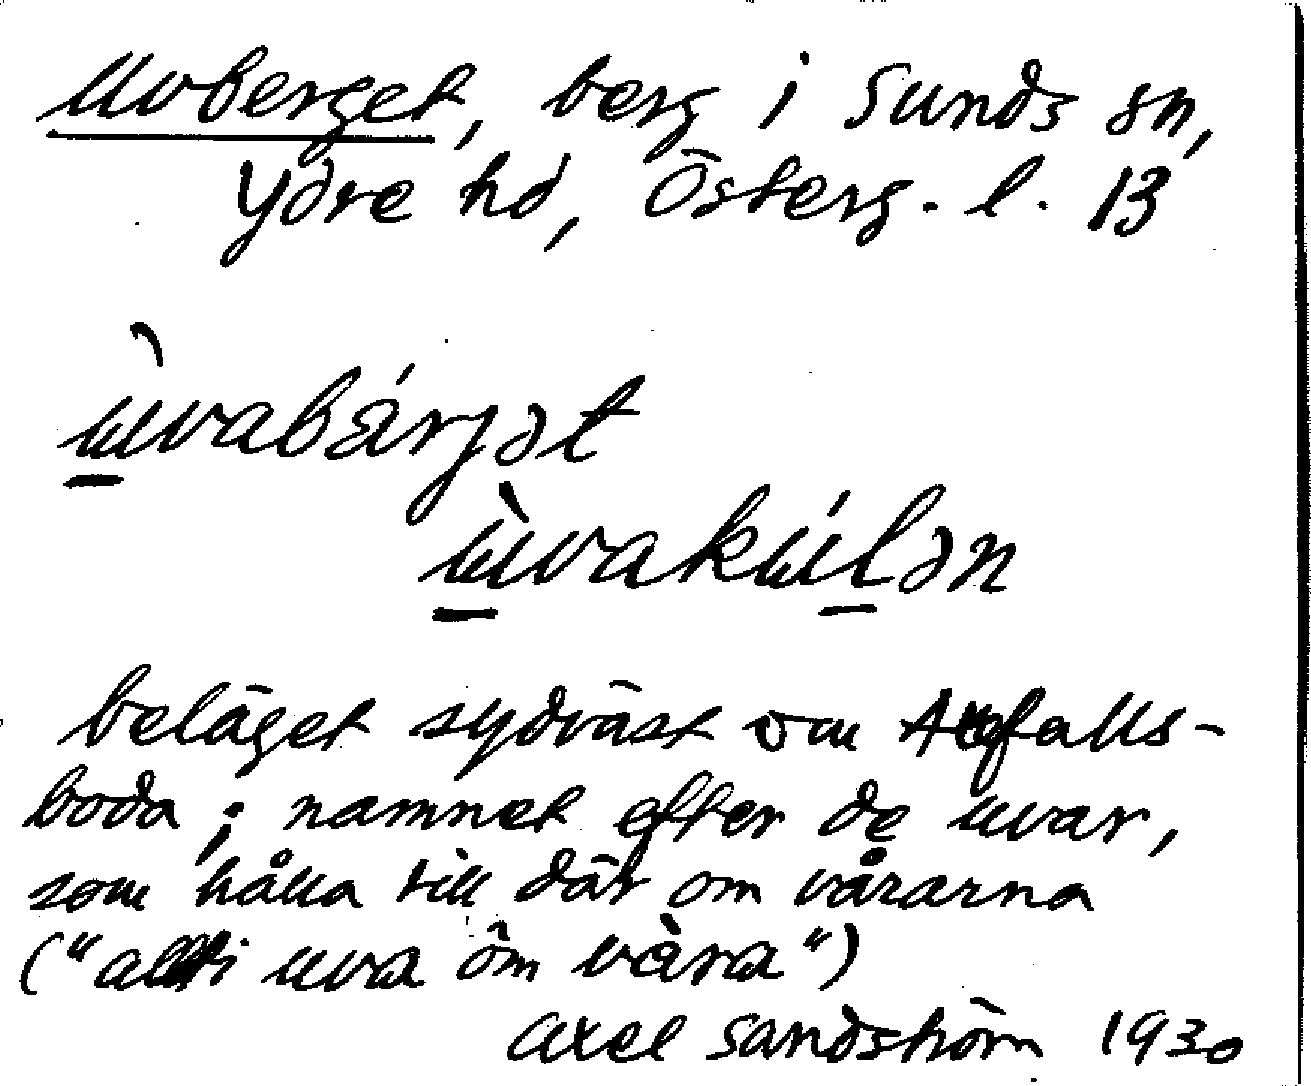 Uvberget, berg i Sunds sn,
Ydre hd, Österg. l. 13
ùvabárjət
ùvakúlən
beläget sydväst om
boda; namnet efter de uvar,
som hålla till där om vårarna
("allti uva ôm vàra")
Axel Sandström 1930